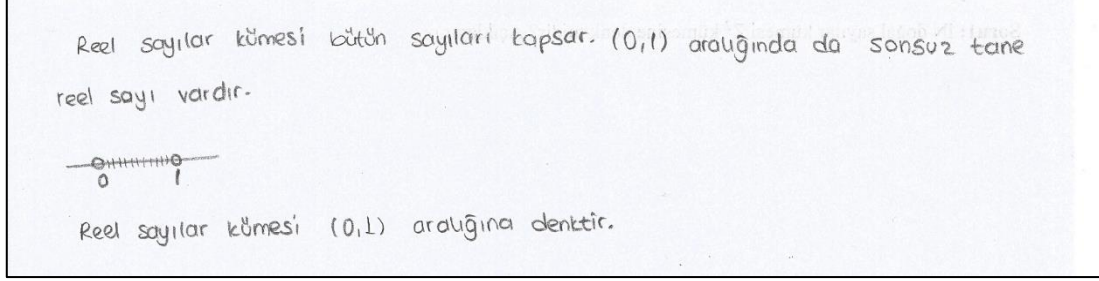 Reel sayılar kümesi bütün sayıları kapsar. (0,1) aralığında da sonsuz tane
reel sayı vardır.
0 1
Reel sayılar kümesi (0,1) aralığına denktir.